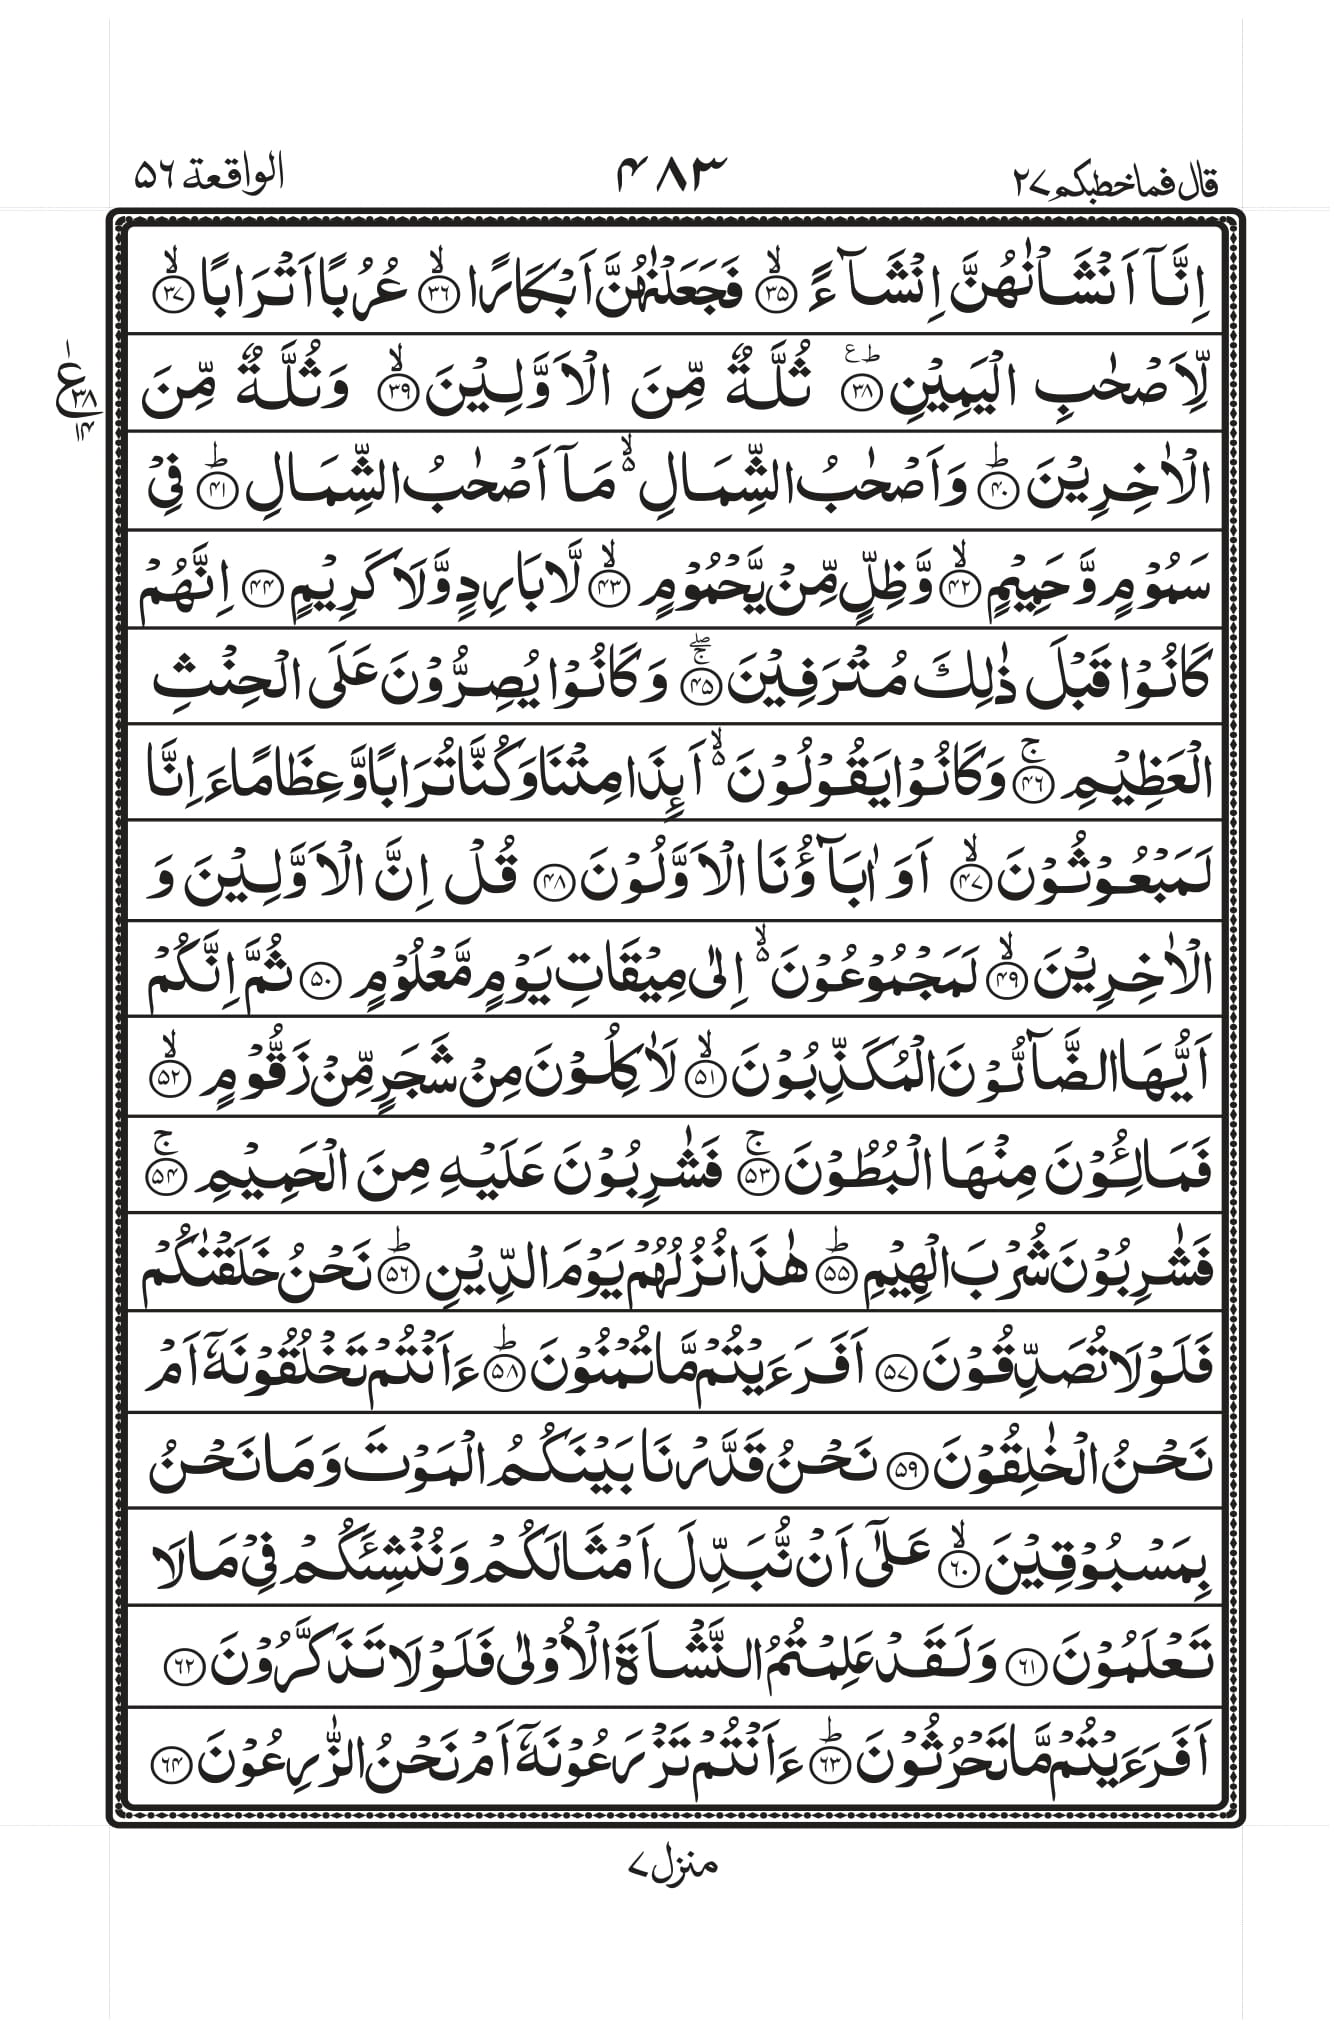 قال فماخطبكم ٢٧
۴٨٣
الواقعة ۵۶
اِنَّاۤ اَنۡشَاۡنٰهُنَّ اِنۡشَآءً ۙ‏﴿۳۵﴾ فَجَعَلۡنٰهُنَّ اَبۡكَارًا ۙ‏﴿۳۶﴾ عُرُبًا اَتۡرَابًا ۙ‏﴿۳۷﴾
لِّاَصۡحٰبِ الۡيَمِيۡنِ ؕع‏﴿۳۸﴾ ثُلَّةٌ مِّنَ الۡاَوَّلِيۡنَ ۙ‏﴿۳۹﴾ وَثُلَّةٌ مِّنَ
الۡاٰخِرِيۡنَ ؕ‏﴿۴۰﴾ وَاَصۡحٰبُ الشِّمَالِ ۙ۬ مَاۤ اَصۡحٰبُ الشِّمَالِ ؕ‏﴿۴۱﴾ فِىۡ
سَمُوۡمٍ وَّحَمِيۡمٍ ۙ‏﴿۴۲﴾ وَّظِلٍّ مِّنۡ يَّحۡمُوۡمٍ ۙ‏﴿۴۳﴾ لَّا بَارِدٍ وَّلَا كَرِيۡمٍ‏﴿۴۴﴾ اِنَّهُمۡ
كَانُوۡا قَبۡلَ ذٰلِكَ مُتۡرَفِيۡنَ ۚۖ‏﴿۴۵﴾ وَكَانُوۡا يُصِرُّوۡنَ عَلَى الۡحِنۡثِ
الۡعَظِيۡمِ ۚ‏﴿۴۶﴾ وَكَانُوۡا يَقُوۡلُوۡنَ ۙ۬ اَٮِٕذَا مِتۡنَا وَكُنَّا تُرَابًا وَّعِظَامًا ءَاِنَّا
لَمَبۡعُوۡثُوۡنَ ۙ‏﴿۴۷﴾ اَوَ اٰبَآؤُنَا الۡاَوَّلُوۡنَ‏﴿۴۸﴾ قُلۡ اِنَّ الۡاَوَّلِيۡنَ وَ
الۡاٰخِرِيۡنَ ۙ‏﴿۴۹﴾ لَمَجۡمُوۡعُوۡنَ ۙ۬ اِلٰى مِيۡقَاتِ يَوۡمٍ مَّعۡلُوۡمٍ‏﴿۵۰﴾ ثُمَّ اِنَّكُمۡ
اَيُّهَا الضَّآلُّوۡنَ الۡمُكَذِّبُوۡنَ ۙ‏﴿۵۱﴾ لَاٰكِلُوۡنَ مِنۡ شَجَرٍ مِّنۡ زَقُّوۡمٍ ۙ‏﴿۵۲﴾
فَمَالِـُٔـوۡنَ مِنۡهَا الۡبُطُوۡنَ ۚ‏﴿۵۳﴾ فَشٰرِبُوۡنَ عَلَيۡهِ مِنَ الۡحَمِيۡمِ ۚ‏﴿۵۴﴾
فَشٰرِبُوۡنَ شُرۡبَ الۡهِيۡمِ ؕ‏﴿۵۵﴾ هٰذَا نُزُلُهُمۡ يَوۡمَ الدِّيۡنِ ؕ‏﴿۵۶﴾ نَحۡنُ خَلَقۡنٰكُمۡ
فَلَوۡلَا تُصَدِّقُوۡنَ‏﴿۵۷﴾ اَفَرَءَيۡتُمۡ مَّا تُمۡنُوۡنَ ؕ‏﴿۵۸﴾ ءَاَنۡتُمۡ تَخۡلُقُوۡنَهٗۤ اَمۡ
نَحۡنُ الۡخٰلِقُوۡنَ‏﴿۵۹﴾ نَحۡنُ قَدَّرۡنَا بَيۡنَكُمُ الۡمَوۡتَ وَمَا نَحۡنُ
بِمَسۡبُوۡقِيۡنَ ۙ‏﴿۶۰﴾ عَلٰٓى اَنۡ نُّبَدِّلَ اَمۡثَالَكُمۡ وَنُنۡشِئَكُمۡ فِىۡ مَا لَا
تَعۡلَمُوۡنَ‏﴿۶۱﴾ وَلَقَدۡ عَلِمۡتُمُ النَّشۡاَةَ الۡاُوۡلٰى فَلَوۡلَا تَذَكَّرُوۡنَ‏﴿۶۲﴾
اَفَرَءَيۡتُمۡ مَّا تَحۡرُثُوۡنَ ؕ‏﴿۶۳﴾ ءَاَنۡتُمۡ تَزۡرَعُوۡنَهٗۤ اَمۡ نَحۡنُ الزّٰرِعُوۡنَ‏﴿۶۴﴾
ع
١
٣٨
١۴
منزل ٧